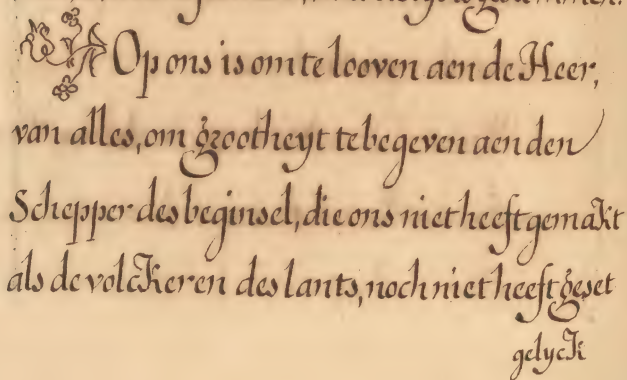 Op ons is om te looven aen de Heer,
van alles, om grootheyt te begeven aen den
Schepper des beginsel, die ons niet heeft gemakt
als de volckeren des lants, noch niet heeft geset
gelyck